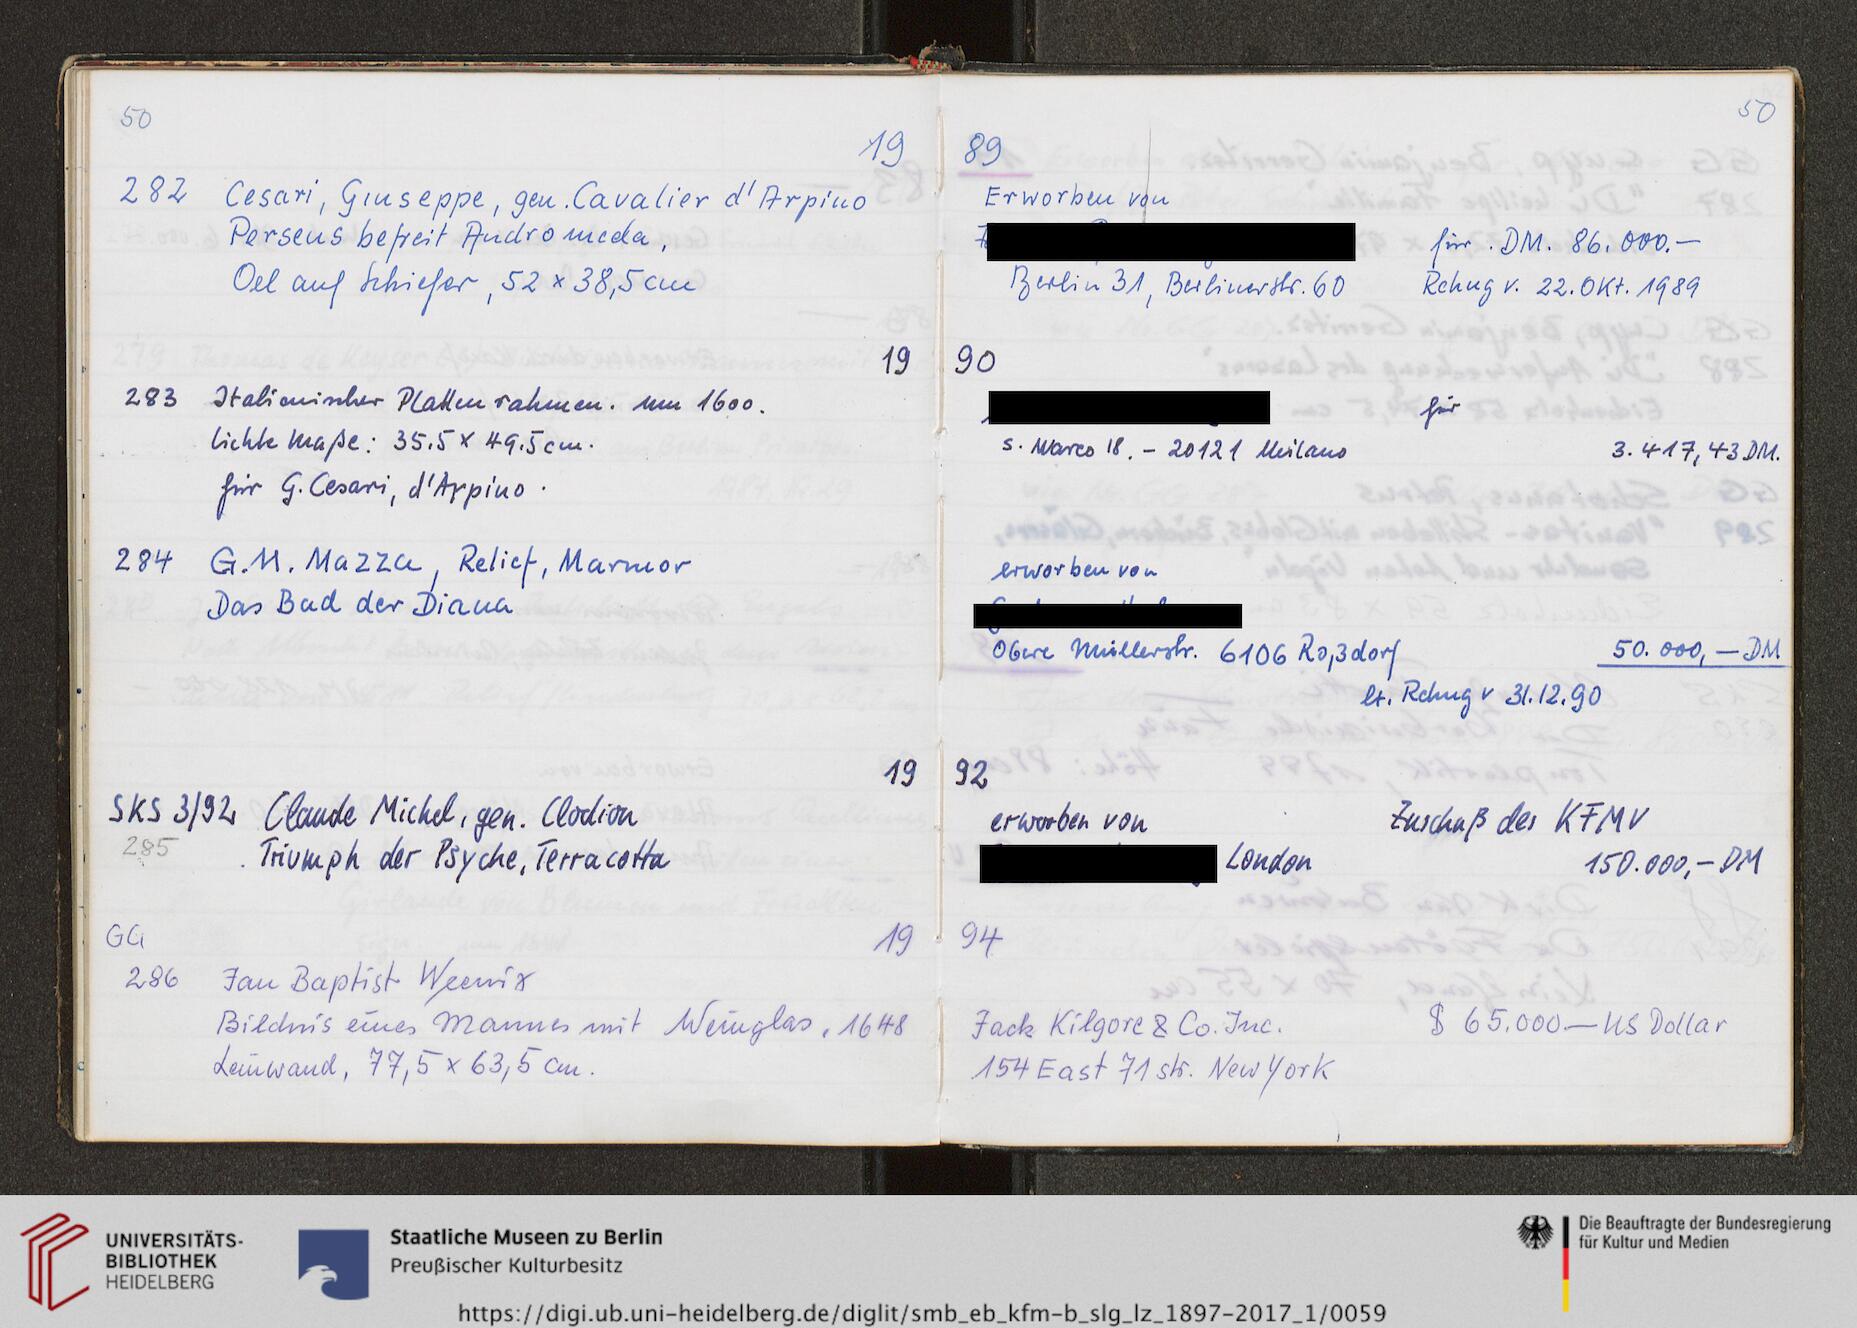 50
19
282 Cesari, Giuseppe, gen. Cavalier d'Arpino
Perseus befreit Andromeda,
Oel auf Schiefer, 52 x 38,5 cm
19
283 Italienischer Plattenrahmen. um 1600.
lichte Maße: 35.5 x 49.5 cm.
für G. Cesari, d'Arpino.
284 G. M. Mazza, Relief, Marmor
Das Bad der Diana
19
SKS 3/92 Claude Michel, gen. Clodion
285 Triumph der Psyche, Terracotta
GG 19
286 Jan Baptist Weenix
Bildnis eines Mannes mit Weinglas, 1648
Leinwand, 77,5 x 63,5 cm.
50
89
Erworben von
für DM. 86.000.—
Berlin 31, Berlinerstr. 60 Rchng v. 22. Okt. 1989
90
für
S. Marco 18. - 20121 Milano 3.417,43 DM.
erworben von
Obere Müllerstr. 6106 Roßdorf 50.000,— DM
lt. Rchng v 31.12.90
92
erworben von Zuschuß des KFMV
London 150.000,- DM
94
Jack Kilgore & Co. Inc. $ 65.000— US Dollar
154 East 71 str. New York
UNIVERSITÄTS-
BIBLIOTHEK
HEIDELBERG
Staatliche Museen zu Berlin
Preußischer Kulturbesitz
https://digi.ub.uni-heidelberg.de/diglit/smb_eb_kfm-b_slg_lz_1897-2017_1/0059
Die Beauftragte der Bundesregierung
für Kultur und Medien